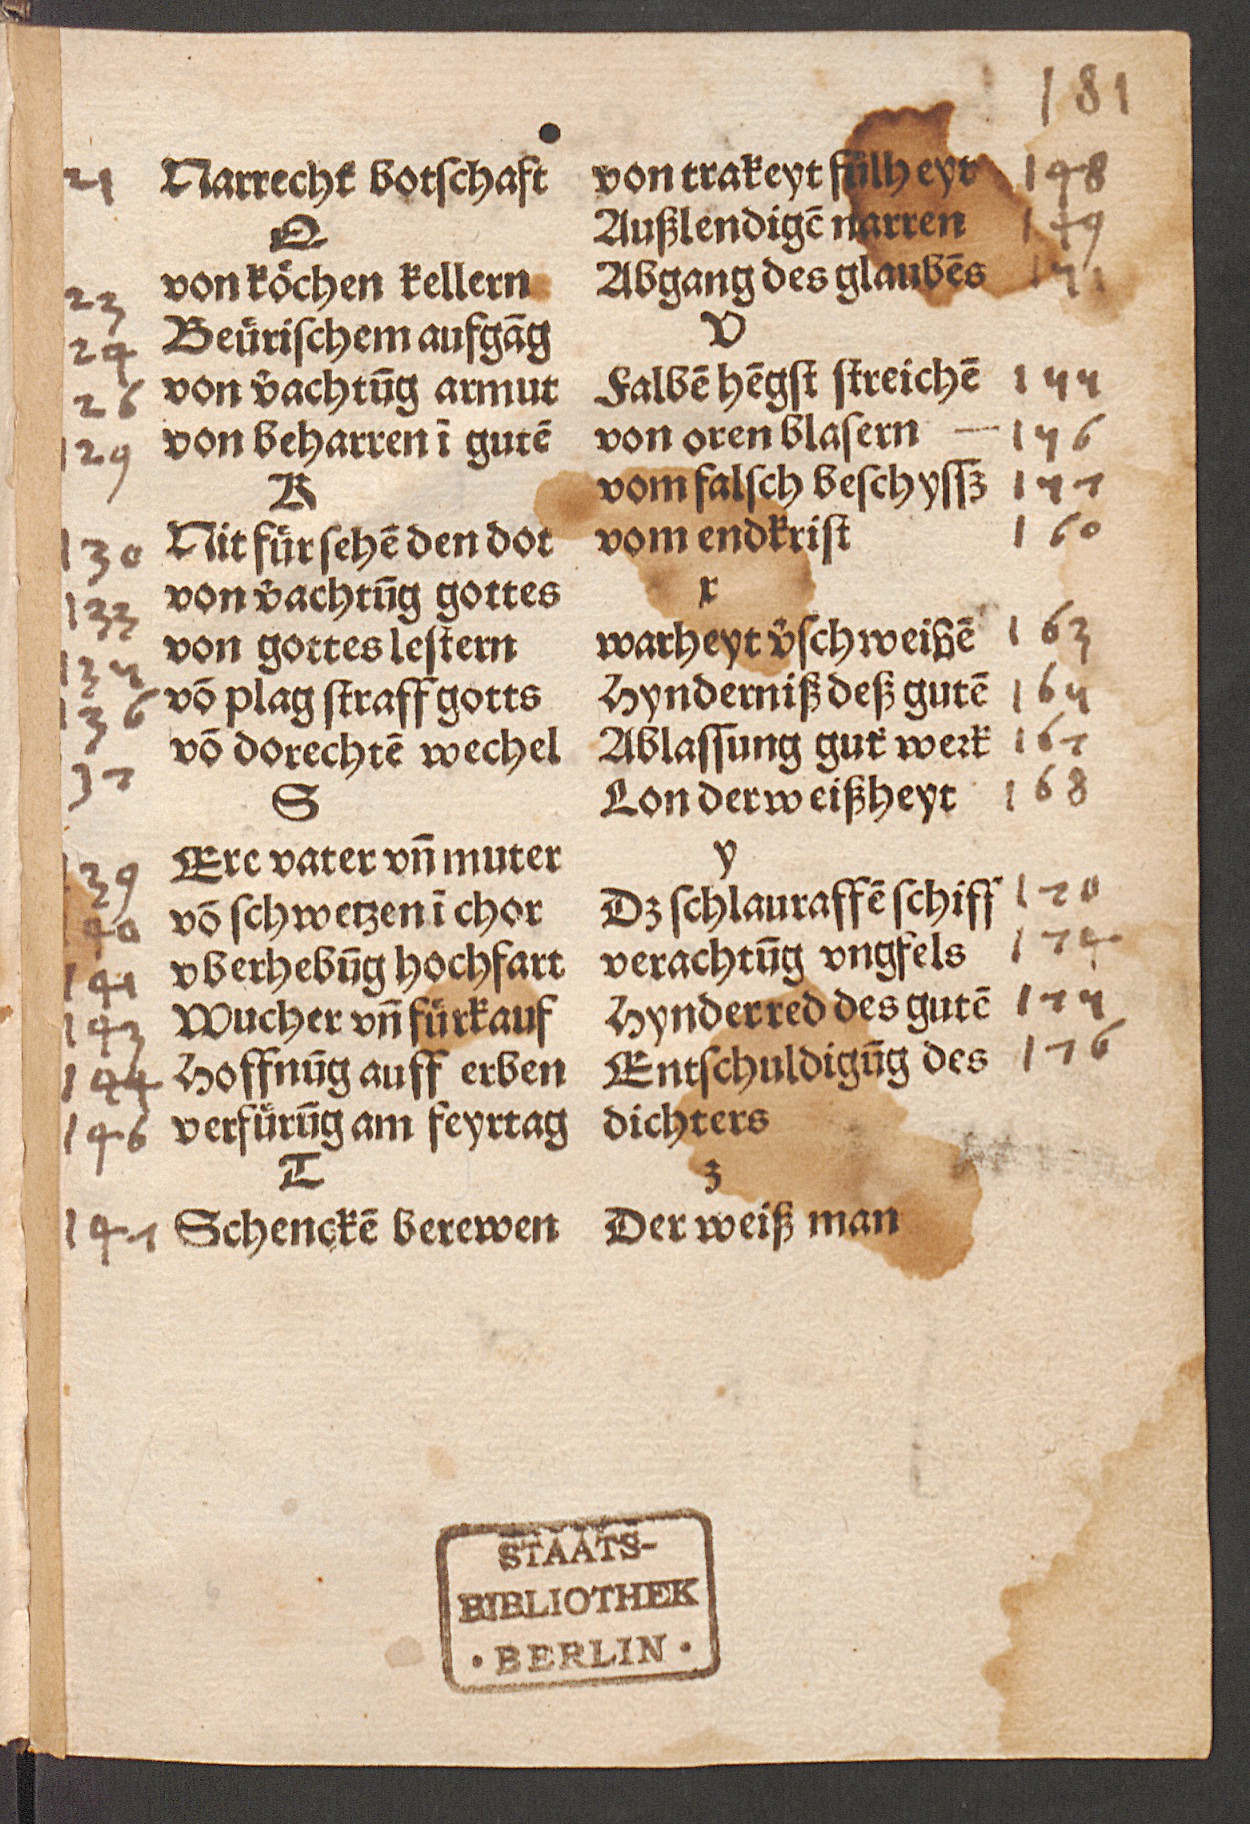 181
21 Narrecht botschaft
Q
23 von koͤchen kellern
24 Beuͤrischem aufgāg
26 von v̉achtūg armut
129 von beharren ī gutē
R
130 Nit fuͤr sehē den dot
133 von v̉achtūg gottes
135 von gottes lestern
136 vō plag straff gotts
37 vō dorechtē wechel
S
39 Ere vater vn̄ muter
40 vō schwetzen ī chor
141 vberhebūg hochfart
143 Wucher vn̄ fuͤrkauf
144 Hoffnūg auff erben
146 verfuͤrūg am feyrtag
T
147 Schenckē berewen
von trakeyt fulheyt 148
Außlendigē narren 149
Abgang des glaubēs 151
V
Falbē hēgst streichē 155
von oren blasern — 156
vom falsch beschyssz 157
vom endkrist 160
x
warheyt v̉schweißē 163
Hynderniß deß gutē 165
Ablassung gut werk 167
Lon der weißheyt 168
y
Dz schlauraffē schiff 170
verachtūg vngfels 174
Hynderred des gutē 175
Entschuldigūg des 176
dichters
z
Der weiß man
STAATS-
BIBLIOTHEK
• BERLIN •